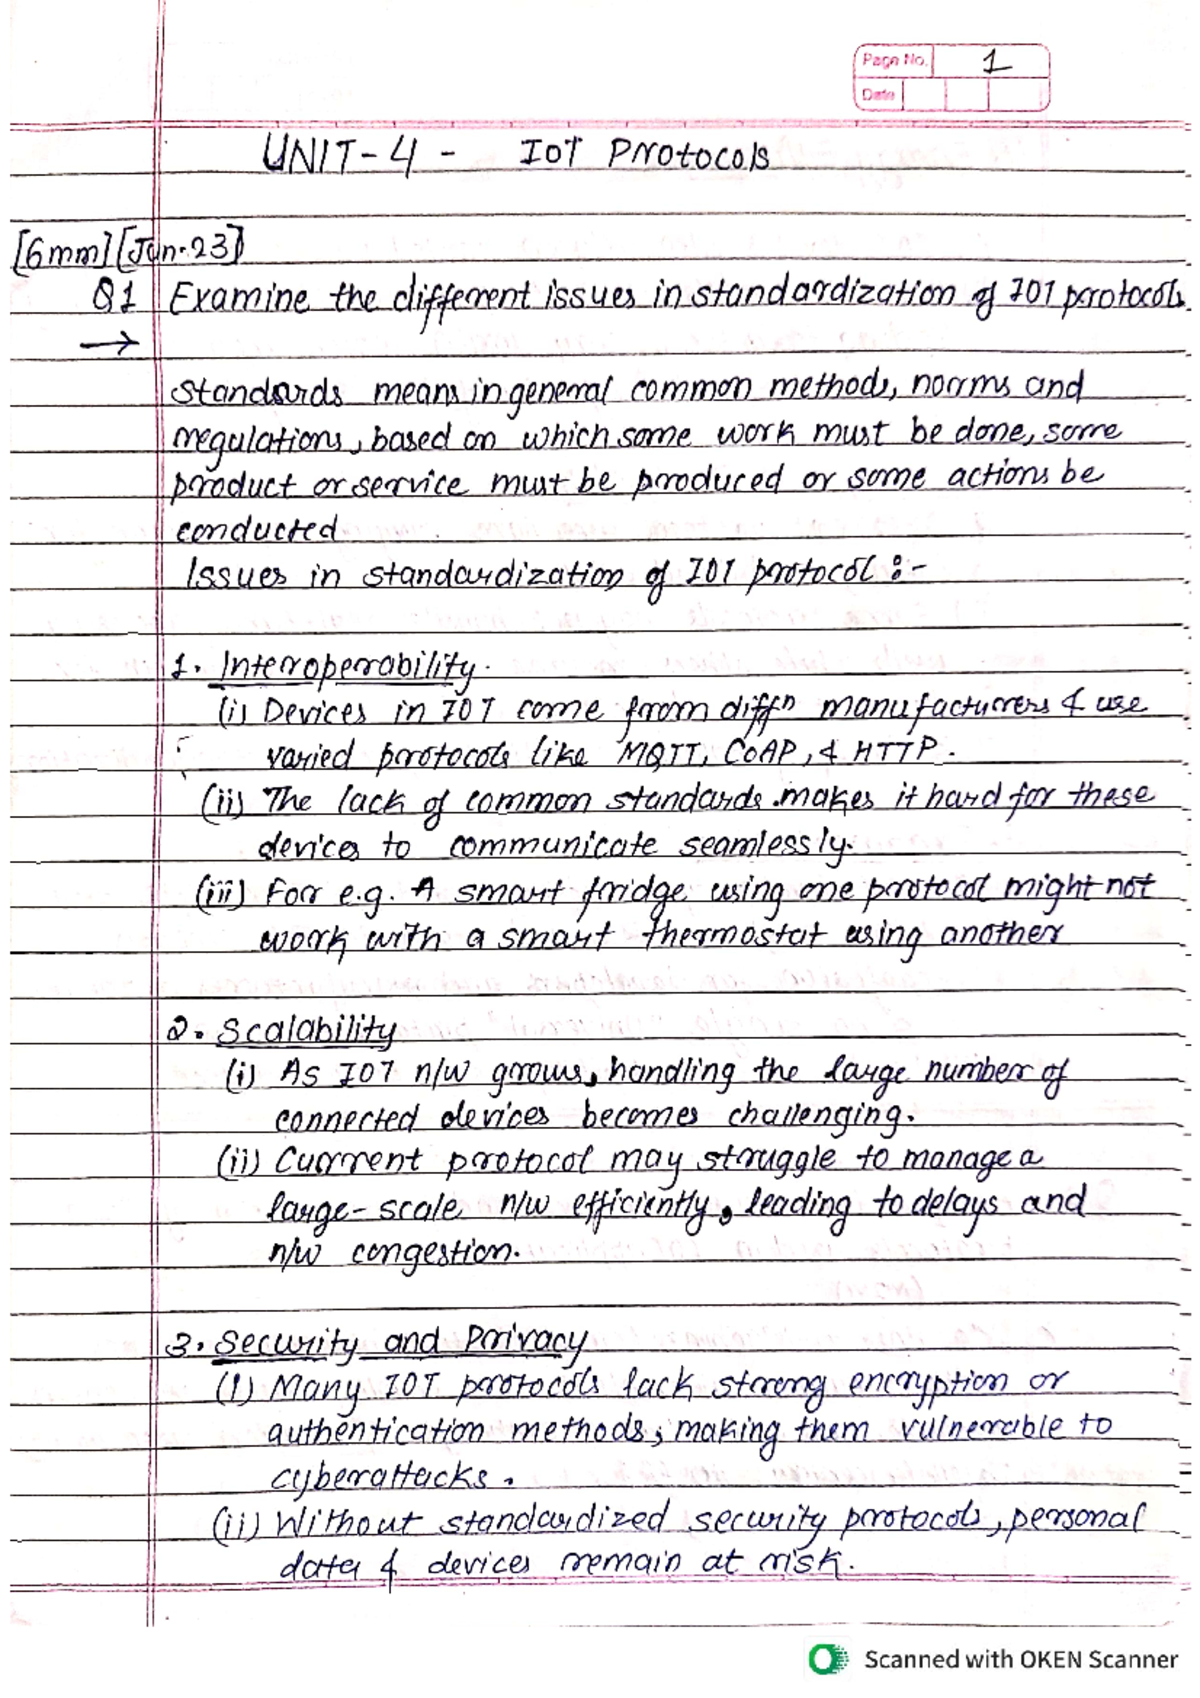 Page No. 1
Date
UNIT-4 - IOT Protocols
[6mm] [Jun-23]
Q1 Examine the different issues in standardization of IOT protocols
→
Standards means in general common methods, norms and
regulations, based on which some work must be done, some
product or service must be produced or some actions be
conducted
Issues in standardization of IOT protocol :-
1. Interoperability.
(i) Devices in IOT come from diffn manufacturers & use
varied protocols like MQTT, COAP, & HTTP.
(ii) The lack of common standards makes it hard for these
devices to communicate seamlessly.
(iii) For e.g. A smart fridge using one protocol might not
work with a smart thermostat using another
2. Scalability
(i) As IOT n/w grows, handling the large number of
connected devices becomes challenging.
(ii) Current protocol may struggle to manage a
large-scale n/w efficiently, leading to delays and
n/w congestion.
3. Security and Privacy
(i) Many IOT protocols lack strong encryption or
authentication methods, making them vulnerable to
cyberattacks.
(ii) Without standardized security protocols, personal
data & devices remain at risk.
Scanned with OKEN Scanner